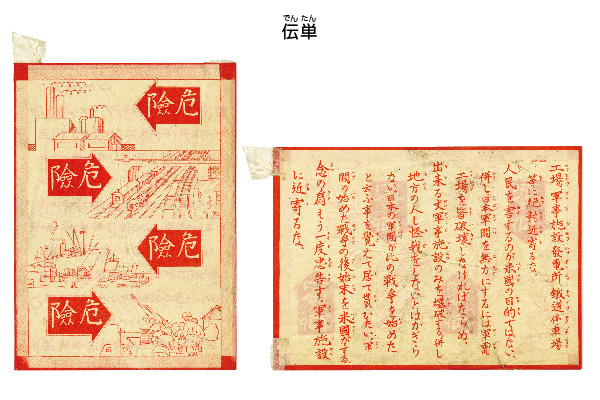 でんたん
伝単
危險
危險
危險
危險
工場 軍事施設 發電所 鐵道 停車場
等に絶対近寄るな。
人民を害するのが米國の目的ではない、
併し日本軍閥を無力にするには軍需
工場を皆破壊しなければならぬ、
出来る丈軍事施設のみを爆破する併し
地方の人も怪我をしないとはかぎら
ない日本の軍閥が此の戦争を始めた
と云ふ事を覚えて居て貰ひたい、軍
閥の始めた戦争の後始末を米國がする、
念の爲もう一度忠告す、軍事施設
に近寄るな、